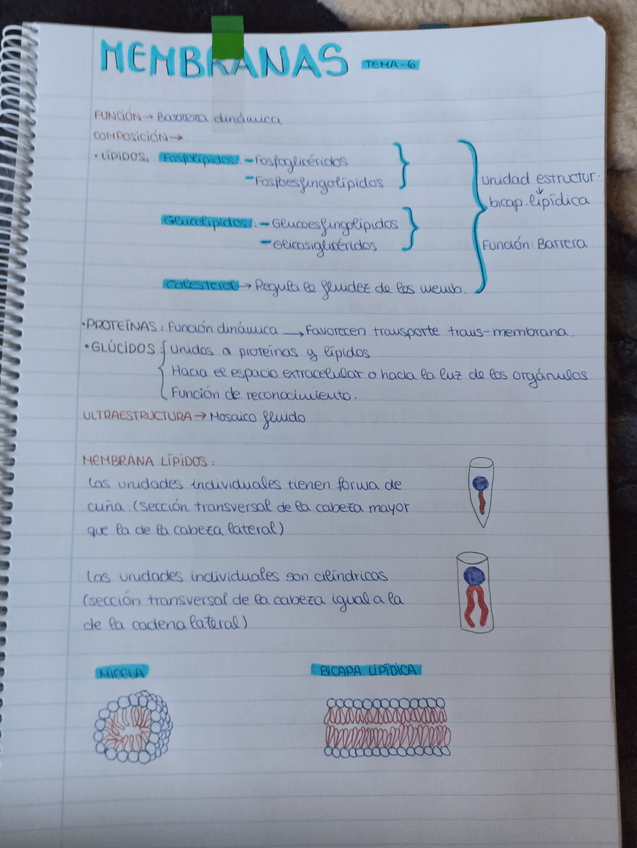 MEMBRANAS TEMA-6
FUNCIÓN → Barrera dinámica
COMPOSICIÓN →
• LÍPIDOS: Fosfolípidos - Fosfoglicéridos
- Fosfoesfingolípidos
unidad estructur.
bicap. lipídica
Glucolípidos - Glucoesfingolípidos
- Glicosiglicéridos
Función Barrera
Colesterol → Regula la fluidez de las memb.
• PROTEÍNAS: Función dinámica → Favorecen transporte trans-membrana.
• GLÚCIDOS { Unidos a proteínas y lípidos
Hacia el espacio extracelular o hacia la luz de los orgánulos
Función de reconocimiento.
ULTRAESTRUCTURA → Mosaico fluido
MEMBRANA LÍPIDOS:
Las unidades individuales tienen forma de
cuña (sección transversal de la cabeza mayor
que la de la cabeza lateral)
Las unidades individuales son cilíndricas
(sección transversal de la cabeza igual a la
de la cadena lateral)
MICELA BICAPA LIPÍDICA